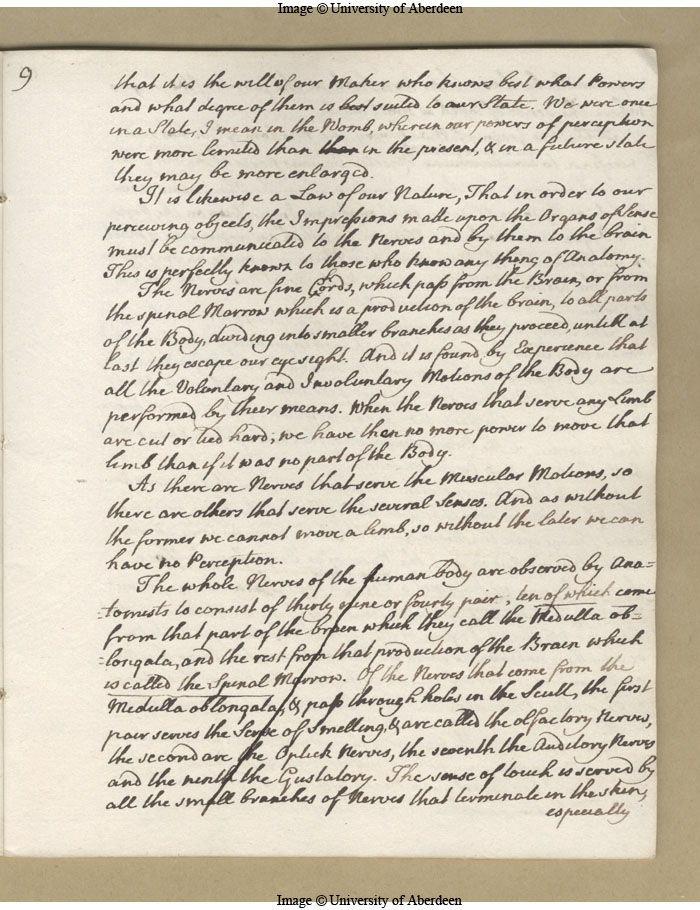 Image © University of Aberdeen
9
that it is the will of our Maker who knows best what Powers
and what degree of them is best suited to our State. We were once
in a State, I mean in the Womb, wherein our powers of perception
were more limited than then in the present, & in a future state
they may be more enlarged.
It is likewise a Law of our Nature, That in order to our
perceiving objects, the Impressions made upon the Organs of Sense
must be communicated to the Nerves and by them to the brain
This is perfectly known to those who know any thing of Anatomy.
The Nerves are fine Cords, which pass from the Brain, or from
the spinal Marrow which is a production of the brain, to all parts
of the Body, dividing into smaller branches as they proceed, untill at
last they escape our eye sight. And it is found by Experience that
all the Voluntary and Involuntary Motions of the Body are
performed by their means. When the Nerves that serve any Limb
are cut or tied hard; we have then no more power to move that
limb than if it was no part of the Body.
As there are Nerves that serve the Muscular Motions, so
there are others that serve the several Senses. And as without
the former we cannot move a limb, so without the later we can
have no Perception.
The whole Nerves of the human body are observed by Ana=
=tomists to consist of thirty nine or fourty pair, ten of which come
from that part of the brain which they call the Medulla ob=
=longata, and the rest from that production of the Brain which
is called the Spinal Marrow. Of the Nerves that come from the
Medulla oblongata, & pass through holes in the Scull, the first
pair serves the Sense of Smelling, & are called the olfactory Nerves,
the second are the Optick Nerves, the seventh the Auditory Nerves
and the ninth the Gustatory. The sense of touch is served by
all the small branches of Nerves that terminate in the skin,
especially
Image © University of Aberdeen